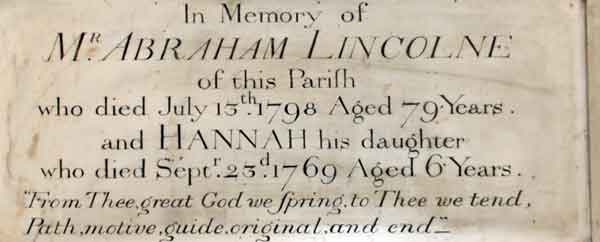 In Memory of
Mr. ABRAHAM LINCOLNE
of this Pariſh
who died July 13th. 1798 Aged 79 Years.
and HANNAH his daughter
who died Septr. 23d. 1769 Aged 6 Years.
"From Thee, great God we ſpring, to Thee we tend,
Path, motive, guide, original, and end"